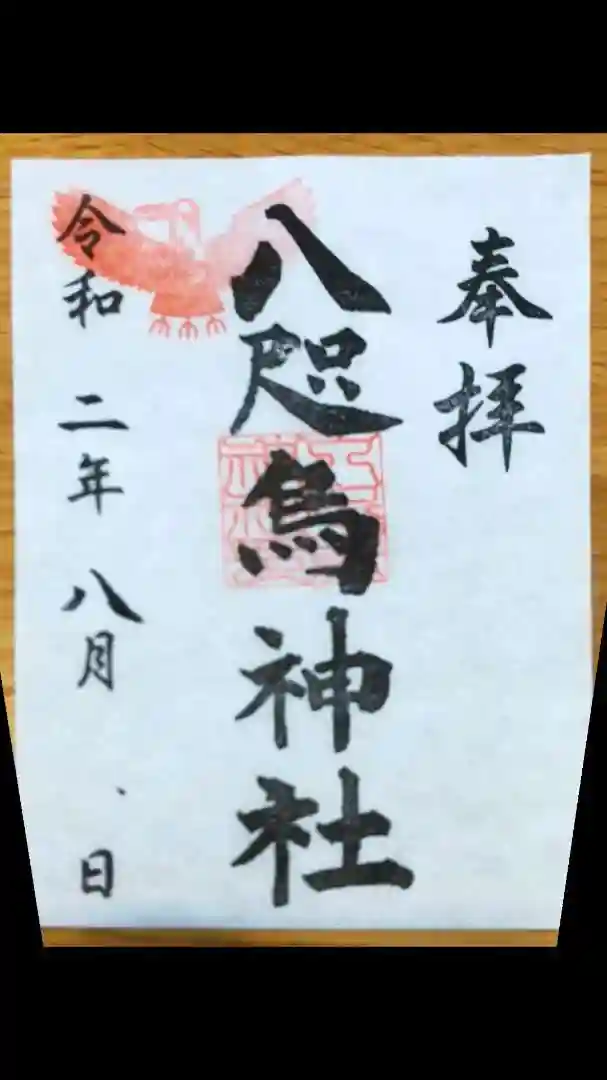 奉拝
八咫烏神社
令和二年八月、日